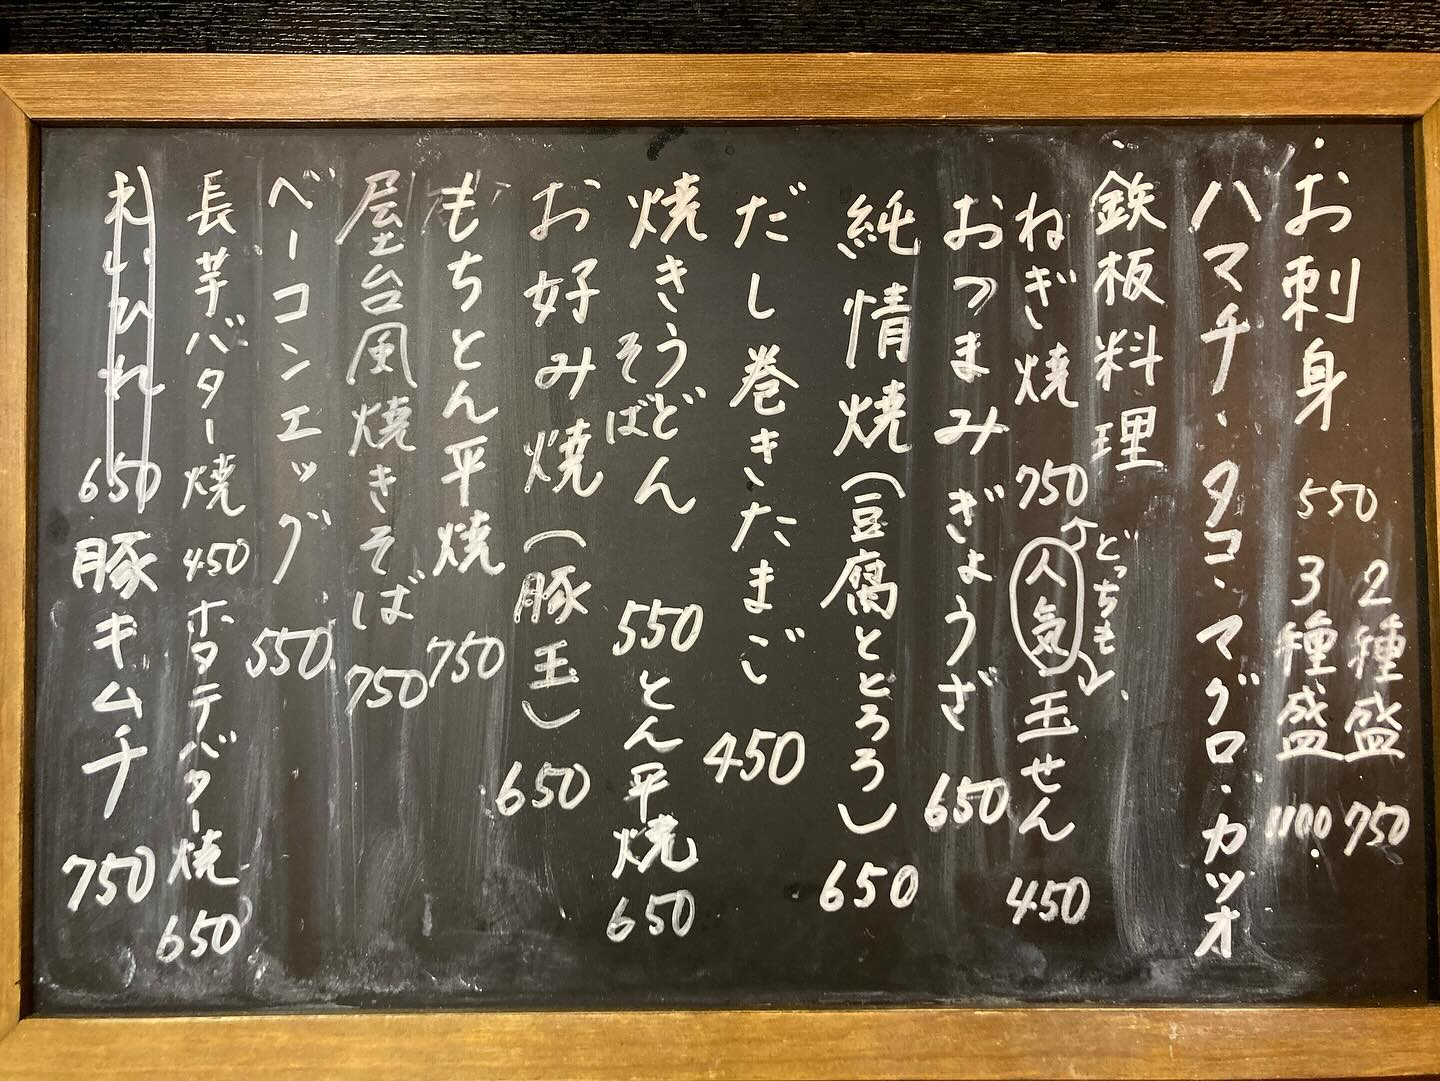 お刺身 550 2種盛 750
3種盛 1100
ハマチ・タコ・マグロ・カツオ
鉄板料理
ねぎ焼 750 人気 玉せん 450
どっちも
おつまみぎょうざ 650
純情焼(豆腐ととろろ) 650
だし巻きたまご 450
焼きうどん 550 とん平焼 650
そば
お好み焼(豚玉) 650
もちとん平焼 750
屋台風焼きそば 750
ベーコンエッグ 550
長芋バター焼 450 ホタテバター焼 650
650 豚キムチ 750